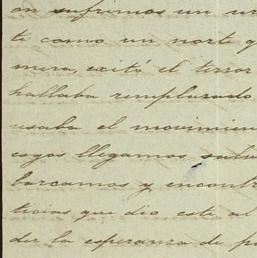 on sufrimos un
te como un norte q
mera, exitó el terror
hallaba remplazado
usaba el movimien
cayos llegamos salv
barcamos y encontr
ticias que dio este al
dar la esperanza de p